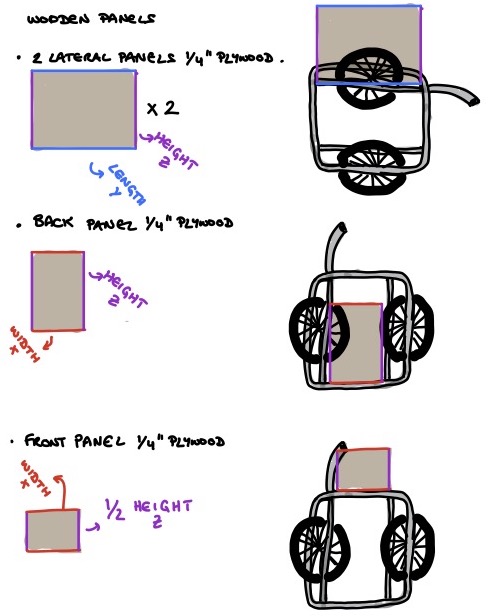 WOODEN PANELS
• 2 LATERAL PANELS 1/4" PLYWOOD.
x 2
HEIGHT
Z
LENGTH
Y
• BACK PANEL 1/4" PLYWOOD
HEIGHT
Z
WIDTH
X
• FRONT PANEL 1/4" PLYWOOD
WIDTH
X
1/2 HEIGHT
Z